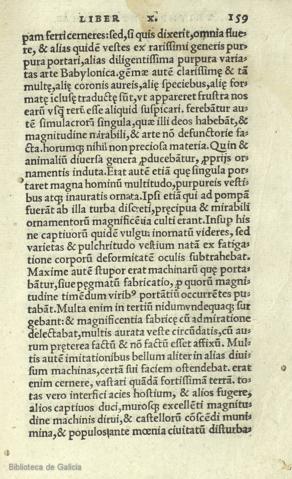 LIBER X. 159
pam ferri cerneres: sed, si quis dixerit, omnia flue
re, & alias quidẽ vestes ex rarissimi generis pur-
pura portari, alias diligentissima purpura varia-
tas arte Babylonica. gẽmæ autẽ clarissimę & tã
multę, alię coronis aureis, alię speciebus, alię for-
matę iclusę traductę sũt, vt appareret frustra nos
earũ vsq̃ rerũ esse aliquid suspicari. ferebãtur au-
tẽ simulacrorũ singula, quæ illi deos habebãt, &
magnitudine mirabili, & arte nõ defunctorie fa-
cta. horumq; nihil non preciosa materia. Quin &
animaliũ diuersa genera ꝓducebãtur, ꝓprijs or-
namentis induta. Erat autẽ etiã que singula por-
taret magna hominũ multitudo, purpureis vesti-
bus atq; inauratis ornata. Ipsi etiã qui ad pompã
fuerãt ab illa turba discreti, pręcipua & mirabili
ornamentorũ magnificẽtia culti erant. Insup his
ne captiuorũ quidẽ vulgu: inornatũ videres, sed
varietas & pulchritudo vestium natã ex fatiga-
tione corporũ deformitatẽ oculis subtrahebat.
Maxime autẽ stupor erat machinarũ quę porta-
bãtur, siue pęgmatũ fabricatio, ꝑ quorũ magni-
tudine timẽdum viribꝰ portãtiũ occurrẽtes pu-
tabãt. Multa enim in tertiũ nidum vndequaq; sur
gebant: & magnificentia fabricę cũ admiratione
delectabat, multis aurata veste circũdatis, cũ au-
rum pręterea factũ & nõ factũ esset affixũ. Mul-
tis autẽ imitationibus bellum aliter in alias diui-
sum machinas, certã sui faciem ostendebat. erat
enim cernere, vastari quãdã fortissimã terrã. to-
tas vero interfici acies hostium, & alios fugere,
alios captiuos duci, murosq; excellẽti magnitu-
dine machinis dirui, & castellorũ cõscẽdi muni-
mina, & populosi ante mœnia ciuitatũ disturba-
Biblioteca de Galicia